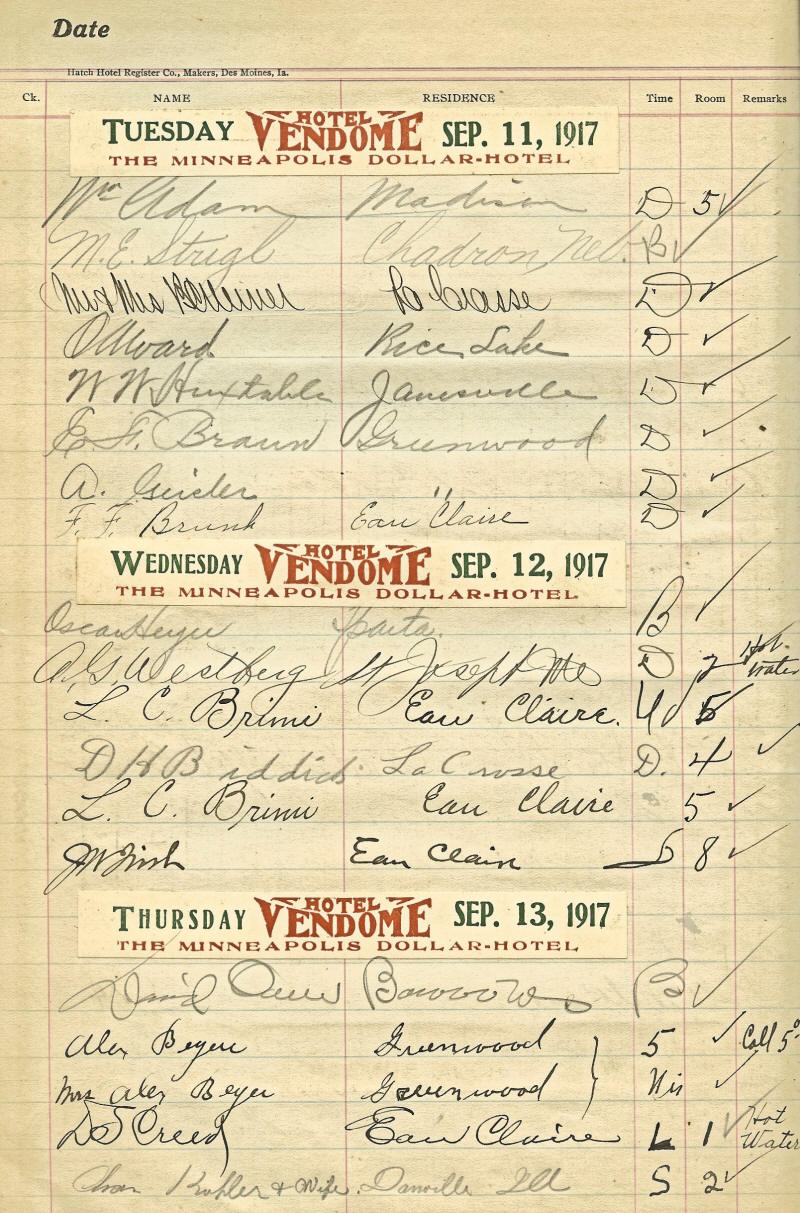 Date
Hatch Hotel Register Co., Makers, Des Moines, Ia.
Ck. NAME RESIDENCE Time Room Remarks
TUESDAY HOTEL VENDOME SEP. 11, 1917
THE MINNEAPOLIS DOLLAR-HOTEL
Wm Adam Madison D 5 ✓
M.E. Strigl Chadron Neb. B ✓
Mr & Mrs La Crosse D ✓
O Ward Rice Lake D ✓
W W Huxtable Janesville D ✓
E. F. Braun Greenwood D ✓
A. Geisler " D ✓
F. F. Brunk Eau Claire D ✓
WEDNESDAY HOTEL VENDOME SEP. 12, 1917
THE MINNEAPOLIS DOLLAR-HOTEL
Oscar Heyer Sparta. B ✓
A. G. Westberg St Joseph Mo D 2 Hot water
L. C. Brimi Eau Claire. 5
D H Biddick La Crosse D. 4 ✓
L. C. Brimi Eau Claire 5 ✓
JW Finh Eau Clair S 8 ✓
THURSDAY HOTEL VENDOME SEP. 13, 1917
THE MINNEAPOLIS DOLLAR-HOTEL
David B ✓
Alex Beyer Greenwood 5 ✓ Call 5
Mrs Alex Beyer Greenwood Wis ✓
D S Creed Eau Claire L 1 ✓ Hot Water
Kohler & Wife. Danville Ill S 2 ✓